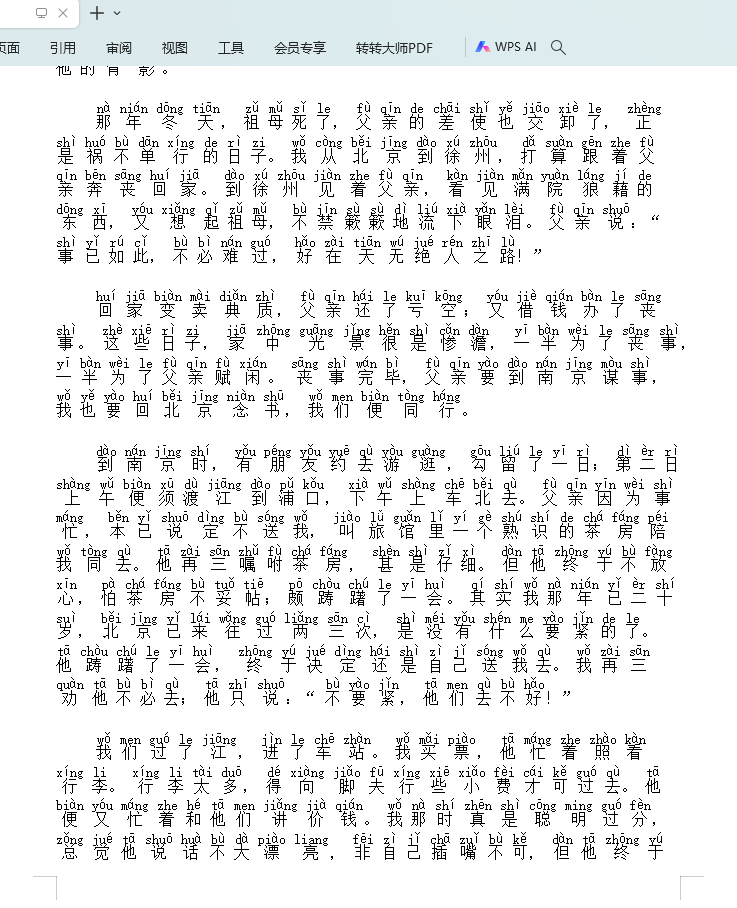 页面 引用 审阅 视图 工具 会员专享 转转大师PDF WPS AI
他的背影。
nà nián dōng tiān zǔ mǔ sǐ le fù qīn de chāi shǐ yě jiāo xiè le zhèng
那年冬天，祖母死了，父亲的差使也交卸了，正
shì huó bù dān xíng de rì zi wǒ cóng běi jīng dào xú zhōu dǎ suàn gēn zhe fù
是祸不单行的日子。我从北京到徐州，打算跟着父
qīn bēn sāng huí jiā dào xú zhōu jiàn zhe fù qīn kàn jiàn mǎn yuàn láng jí de
亲奔丧回家。到徐州见着父亲，看见满院狼藉的
dōng xī yóu xiǎng qǐ zǔ mǔ bù jīn sù sù dì liú xià yǎn lèi fù qīn shuō
东西，又想起祖母，不禁簌簌地流下眼泪。父亲说：“
shì yǐ rú cǐ bù bì nán guó hǎo zài tiān wú jué rén zhī lù
事已如此，不必难过，好在天无绝人之路！”
huí jiā biàn mài diǎn zhì fù qīn hái le kuī kōng yóu jiè qián bàn le sāng
回家变卖典质，父亲还了亏空；又借钱办了丧
shì zhè xiē rì zi jiā zhōng guāng jǐng hěn shì cǎn dàn yī bàn wèi le sāng shì
事。这些日子，家中光景很是惨澹，一半为了丧事，
yī bàn wèi le fù qīn fù xián sāng shì wán bì fù qīn yào dào nán jīng móu shì
一半为了父亲赋闲。丧事完毕，父亲要到南京谋事，
wǒ yě yào huí běi jīng niàn shū wǒ men biàn tòng háng
我也要回北京念书，我们便同行。
dào nán jīng shí yǒu péng yǒu yuē qù yóu guàng gōu liú le yī rì dì èr rì
到南京时，有朋友约去游逛，勾留了一日；第二日
shàng wǔ biàn xū dù jiāng dào pǔ kǒu xià wǔ shàng chē běi qù fù qīn yīn wèi shì
上午便须渡江到浦口，下午上车北去。父亲因为事
máng běn yǐ shuō dìng bù sóng wǒ jiào lǚ guǎn lǐ yí gè shú shí de chá fáng péi
忙，本已说定不送我，叫旅馆里一个熟识的茶房陪
wǒ tòng qù tā zài sān zhǔ fù chá fáng shèn shì zǐ xì dàn tā zhōng yú bù fàng
我同去。他再三嘱咐茶房，甚是仔细。但他终于不放
xīn pà chá fáng bù tuǒ tiē pō chòu chú le yī huì qí shí wǒ nà nián yǐ èr shí
心，怕茶房不妥帖；颇踌躇了一会。其实我那年已二十
suì běi jīng yǐ lái wǎng guó liǎng sān cì shì méi yǒu shén me yào jǐn de le
岁，北京已来往过两三次，是没有什么要紧的了。
tā chòu chú le yī huì zhōng yú jué dìng hái shì zì jǐ sóng wǒ qù wǒ zài sān
他踌躇了一会，终于决定还是自己送我去。我再三
quàn tā bù bì qù tā zhī shuō bù yào jǐn tā men qù bù hǎo
劝他不必去；他只说：“不要紧，他们去不好！”
wǒ men guó le jiāng jìn le chē zhàn wǒ mǎi piào tā máng zhe zhào kàn
我们过了江，进了车站。我买票，他忙着照看
xíng li xíng li tài duō dé xiàng jiǎo fū xíng xiē xiǎo fèi cái kě guó qù tā
行李。行李太多，得向脚夫行些小费才可过去。他
biàn yóu máng zhe hé tā men jiǎng jià qián wǒ nà shí zhēn shì cōng ming guó fèn
便又忙着和他们讲价钱。我那时真是聪明过分，
zǒng jué tā shuō huà bù dà piào liang fēi zì jǐ chā zuǐ bù kě dàn tā zhōng yú
总觉他说话不大漂亮，非自己插嘴不可，但他终于